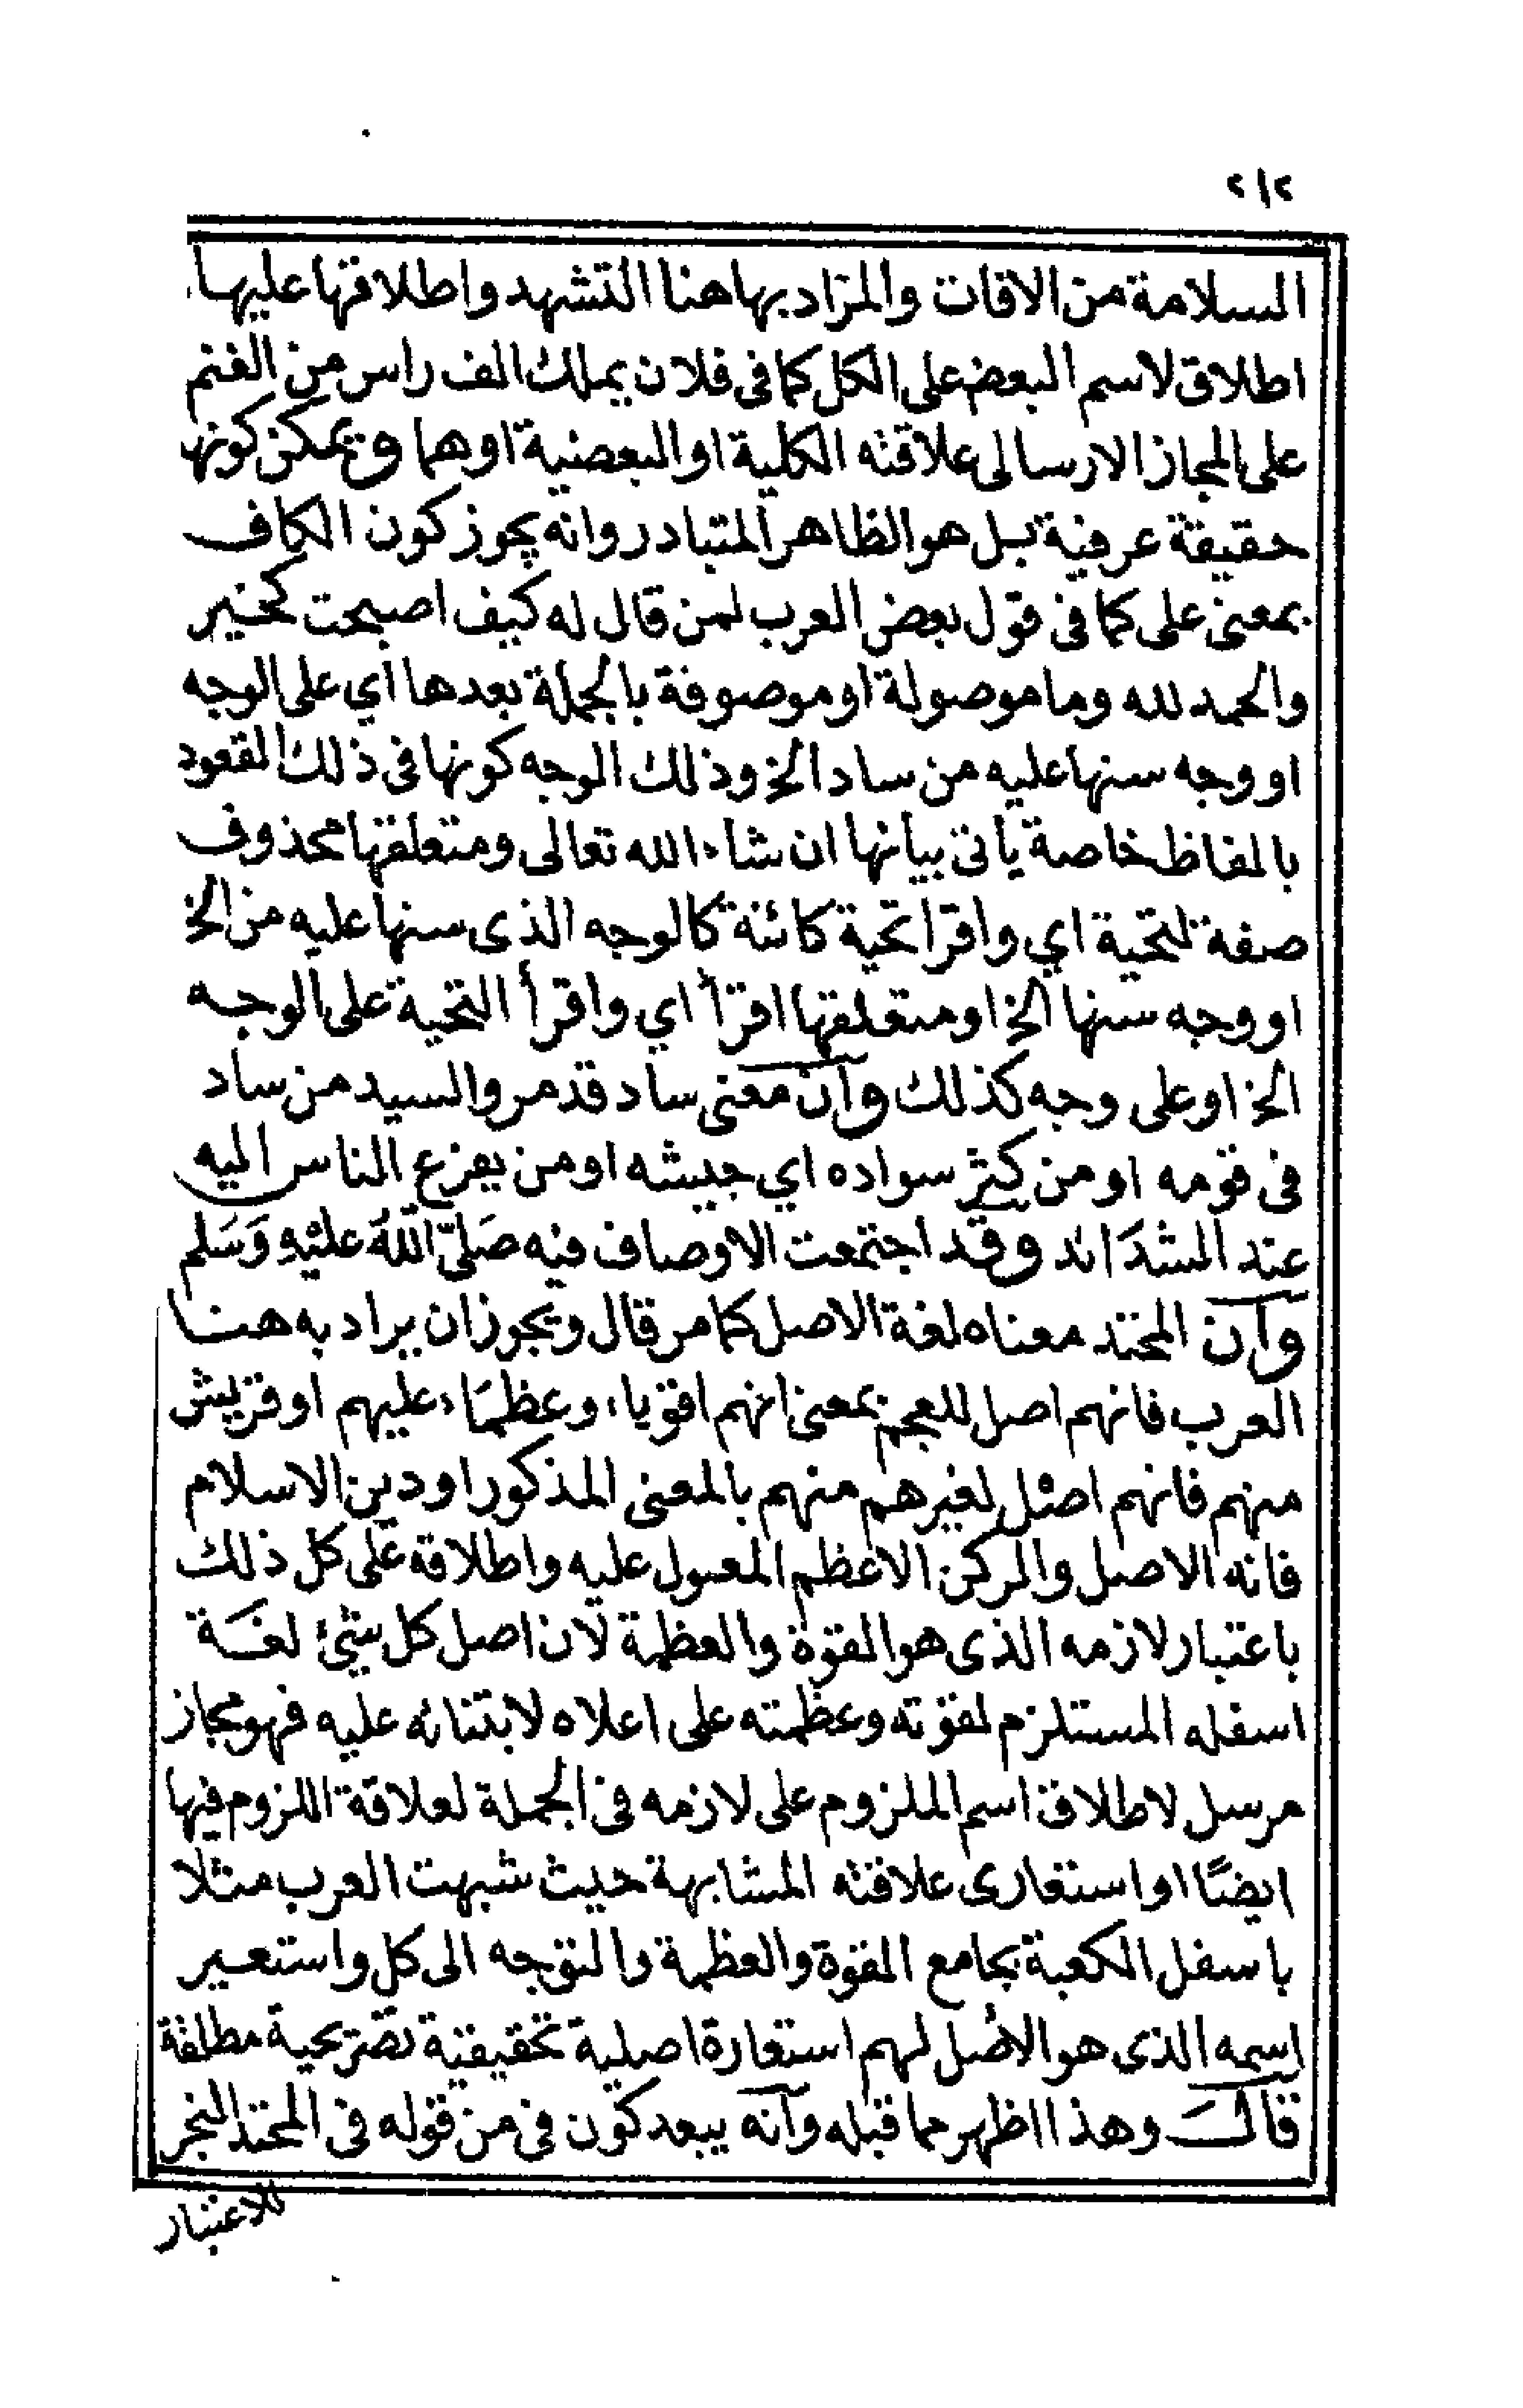 ٢١٢
السلامة من الافات والمراد بها هنا التشهد واطلاقها عليها
اطلاق لاسم البعض على الكل كما فى فلان يملك الف راس من الغنم
على المجاز الارسالى علاقته الكلية او البعضية او هما و يمكن كونها
حقيقة عرفية بل هو الظاهر المتبادر وانه يجوز كون الكاف
بمعنى على كما فى قول بعض العرب لمن قال له كيف اصبحت كخير
والحمد لله وما موصولة او موصوفة بالجملة بعدها اي على الوجه
او وجه سنها عليه من ساد الخ وذلك الوجه كونها فى ذلك القعود
بالفاظ خاصة يأتى بيانها ان شاء الله تعالى ومتعلقها محذوف
صفة لتحية اي واقرا تحية كائنة كالوجه الذى سنها عليه من الخ
او وجه سنها الخ او متعلقها اقرأ اي واقرأ التحية على الوجه
الخ او على وجه كذلك وان معنى ساد قد مر والسيد من ساد
فى قومه او من كثر سواده اي جيشه او من يفزع الناس اليه
عند الشدائد وقد اجتمعت الاوصاف فيه صَلّى اللهُ عليْهِ وَسَلم
وان المحتد معناه لغة الاصل كما مر قال ويجوز ان يراد به هنا
العرب فانهم اصل للعجم بمعنى انهم اقوياء وعظماء عليهم او قريش
منهم فانهم اصل لغيرهم منهم بالمعنى المذكور او دين الاسلام
فانه الاصل والركن الاعظم المعول عليه واطلاقه على كل ذلك
باعتبار لازمه الذى هو القوة والعظمة لان اصل كل شئ لغة
اسفله المستلزم لقوته وعظمته على اعلاه لابتنائه عليه فهو مجاز
مرسل لاطلاق اسم الملزوم على لازمه فى الجملة لعلاقة اللزوم فيها
ايضًا او استعارى علاقته المشابهة حيث شبهت العرب مثلا
باسفل الكعبة بجامع القوة والعظمة والتوجه الى كل واستعير
اسمه الذى هو الاصل لهم استعارة اصلية تحقيقية تصريحية مطلقة
قال وهذا اظهر مما قبله وانه يبعد كون فى من قوله فى المحتد النجر
للاعتبار